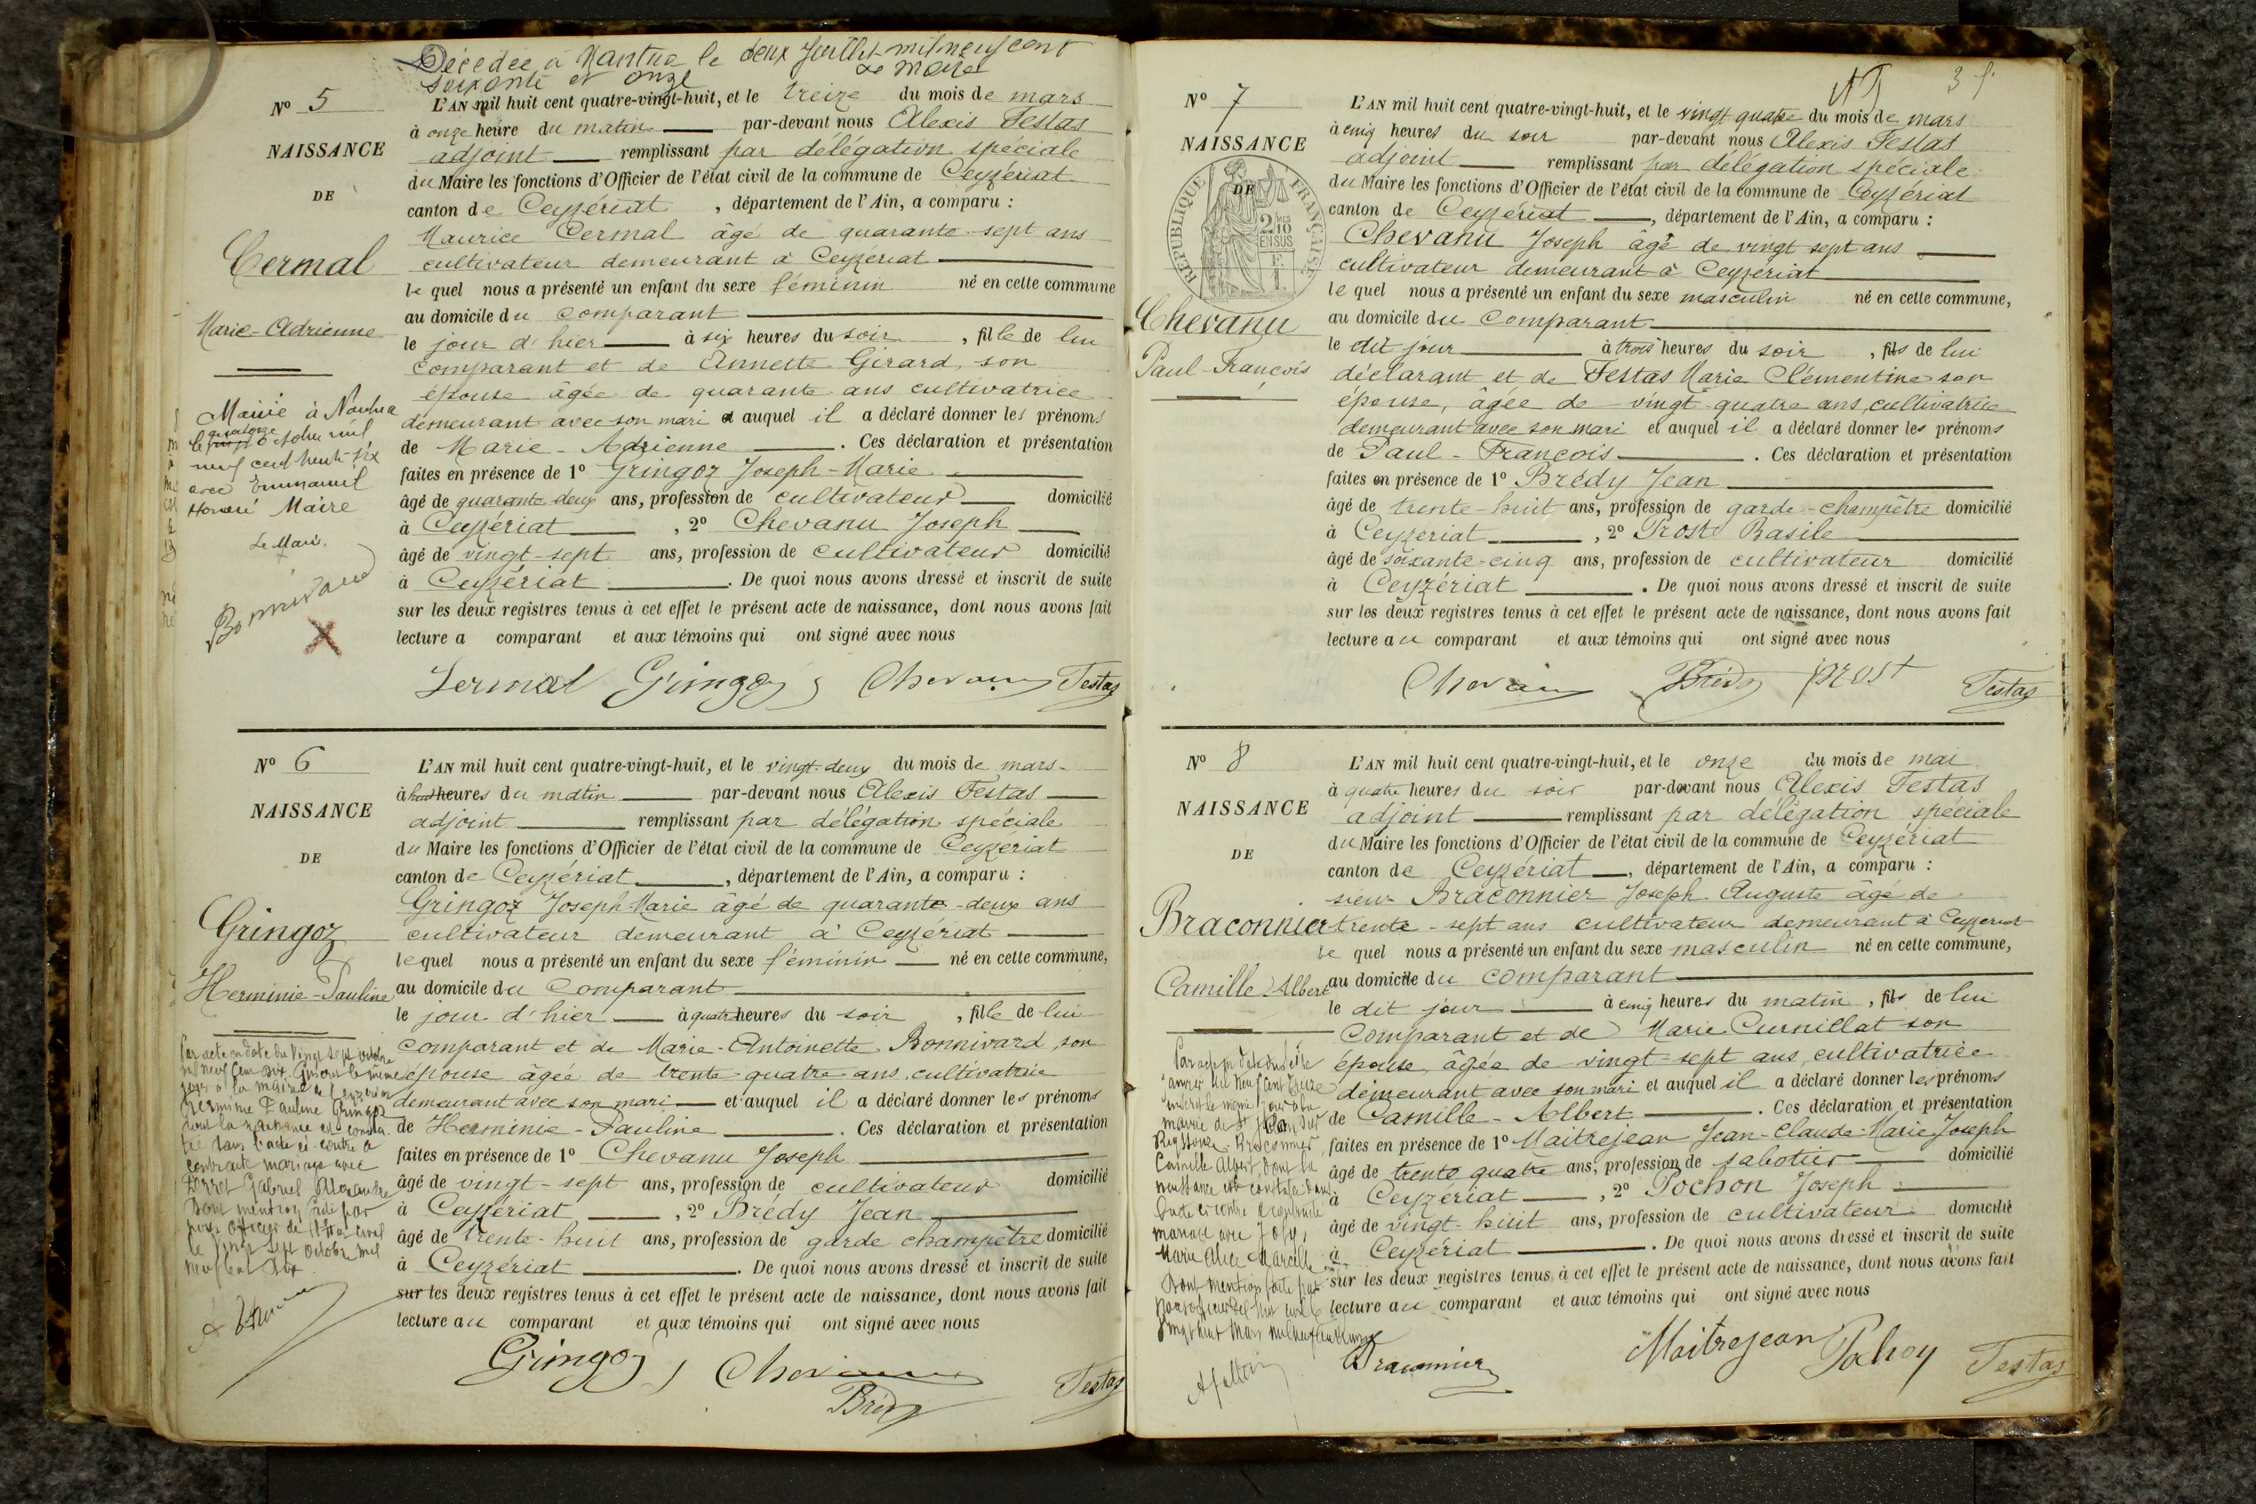 Décédée à Nantua le deux Juillet mil neuf cent
soixante et onze Le Maire
N° 5
NAISSANCE
DE
Cermal
Marie-Adrienne
Mariée à Nantua
le quatorze octobre mil
neuf cent trente-six
avec Emmanuel
Honoré Maire
Le Maire
Bonnivard
L'AN mil huit cent quatre-vingt-huit, et le treize du mois de mars
à onze heure du matin par-devant nous Alexis Festas
adjoint remplissant par délégation spéciale
du Maire les fonctions d'Officier de l'état civil de la commune de Ceyzériat
canton de Ceyzériat, département de l'Ain, a comparu :
Maurice Cermal âgé de quarante-sept ans
cultivateur demeurant à Ceyzériat
lequel nous a présenté un enfant du sexe féminin né en cette commune
au domicile du comparant
le jour d'hier à six heures du soir, fille de lui
comparant et de Annette Girard, son
épouse âgée de quarante ans cultivatrice
demeurant avec son mari et auquel il a déclaré donner les prénoms
de Marie-Adrienne. Ces déclaration et présentation
faites en présence de 1° Gringoz Joseph-Marie
âgé de quarante deux ans, profession de cultivateur domicilié
à Ceyzériat, 2° Chevanu Joseph
âgé de vingt-sept ans, profession de cultivateur domicilié
à Ceyzériat. De quoi nous avons dressé et inscrit de suite
sur les deux registres tenus à cet effet le présent acte de naissance, dont nous avons fait
lecture a comparant et aux témoins qui ont signé avec nous
Sermal Gringoz Chevanu Testas
N° 6
NAISSANCE
DE
Gringoz
Herminie-Pauline
Par acte en date du Vingt sept octobre
mil neuf cent dix, inscrit le même
jour à la mairie de Ceyzériat
Herminie Pauline Gringoz
dont la naissance est consta
tée dans l'acte ci-contre a
contracté mariage avec
Gabriel Alexandre
Dont mention faite par
nous officier de l'état civil
le vingt sept octobre mil
neuf cent dix
L'AN mil huit cent quatre-vingt-huit, et le vingt-deux du mois de mars
à huit heures du matin par-devant nous Alexis Festas
adjoint remplissant par délégation spéciale
du Maire les fonctions d'Officier de l'état civil de la commune de Ceyzériat
canton de Ceyzériat, département de l'Ain, a comparu :
Gringoz Joseph-Marie âgé de quarante-deux ans
cultivateur demeurant à Ceyzériat
lequel nous a présenté un enfant du sexe féminin né en cette commune,
au domicile du comparant
le jour d'hier à quatre heures du soir, fille de lui
comparant et de Marie-Antoinette Bonnivard son
épouse âgée de trente-quatre ans, cultivatrice
demeurant avec son mari et auquel il a déclaré donner les prénoms
de Herminie-Pauline. Ces déclaration et présentation
faites en présence de 1° Chevanu Joseph
âgé de vingt-sept ans, profession de cultivateur domicilié
à Ceyzériat, 2° Brédy Jean
âgé de trente-huit ans, profession de garde champêtre domicilié
à Ceyzériat. De quoi nous avons dressé et inscrit de suite
sur les deux registres tenus à cet effet le présent acte de naissance, dont nous avons fait
lecture au comparant et aux témoins qui ont signé avec nous
Gringoz Chevanu Testas
Brédy
3
N° 7
NAISSANCE
DE
RÉPUBLIQUE FRANÇAISE
2/10 EN SUS
Chevanu
Paul-François
L'AN mil huit cent quatre-vingt-huit, et le vingt-quatre du mois de mars
à cinq heures du soir par-devant nous Alexis Festas
adjoint remplissant par délégation spéciale
du Maire les fonctions d'Officier de l'état civil de la commune de Ceyzériat
canton de Ceyzériat, département de l'Ain, a comparu :
Chevanu Joseph âgé de vingt sept ans
cultivateur demeurant à Ceyzériat
lequel nous a présenté un enfant du sexe masculin né en cette commune,
au domicile du comparant
le dit jour à trois heures du soir, fils de lui
déclarant et de Festas Marie Clémentine son
épouse, âgée de vingt-quatre ans, cultivatrice
demeurant avec son mari et auquel il a déclaré donner les prénoms
de Paul-François. Ces déclaration et présentation
faites en présence de 1° Brédy Jean
âgé de trente-huit ans, profession de garde-champêtre domicilié
à Ceyzériat, 2° Prost Basile
âgé de soixante-cinq ans, profession de cultivateur domicilié
à Ceyzériat. De quoi nous avons dressé et inscrit de suite
sur les deux registres tenus à cet effet le présent acte de naissance, dont nous avons fait
lecture au comparant et aux témoins qui ont signé avec nous
Chevanu Brédy prost Testas
N° 8
NAISSANCE
DE
Braconnier
Camille Albert
Par acte en date du
janvier mil neuf cent treize
inscrit le même jour à la
mairie de St Jean sur
Reyssouze, Braconnier
Camille Albert dont la
naissance est constatée dans
l'acte ci contre a contracté
mariage avec Joly
Marie Alice Marcelle
Dont mention faite par
vingt huit Mars mil neuf cent
L'AN mil huit cent quatre-vingt-huit, et le onze du mois de mai
à quatre heures du soir par-devant nous Alexis Festas
adjoint remplissant par délégation spéciale
du Maire les fonctions d'Officier de l'état civil de la commune de Ceyzériat
canton de Ceyzériat, département de l'Ain, a comparu :
sieur Braconnier Joseph Auguste âgé de
trente-sept ans cultivateur demeurant à Ceyzériat
le quel nous a présenté un enfant du sexe masculin né en cette commune,
au domicile du comparant
le dit jour à cinq heures du matin, fils de lui
comparant et de Marie Curnillat son
épouse, âgée de vingt-sept ans, cultivatrice
demeurant avec son mari et auquel il a déclaré donner les prénoms
de Camille-Albert. Ces déclaration et présentation
faites en présence de 1° Maitrejean Jean-Claude-Marie Joseph
âgé de trente quatre ans, profession de sabotier domicilié
à Ceyzériat, 2° Pochon Joseph
âgé de vingt-huit ans, profession de cultivateur domicilié
à Ceyzériat. De quoi nous avons dressé et inscrit de suite
sur les deux registres tenus à cet effet le présent acte de naissance, dont nous avons fait
lecture au comparant et aux témoins qui ont signé avec nous
Braconnier Maitrejean Pochon Testas